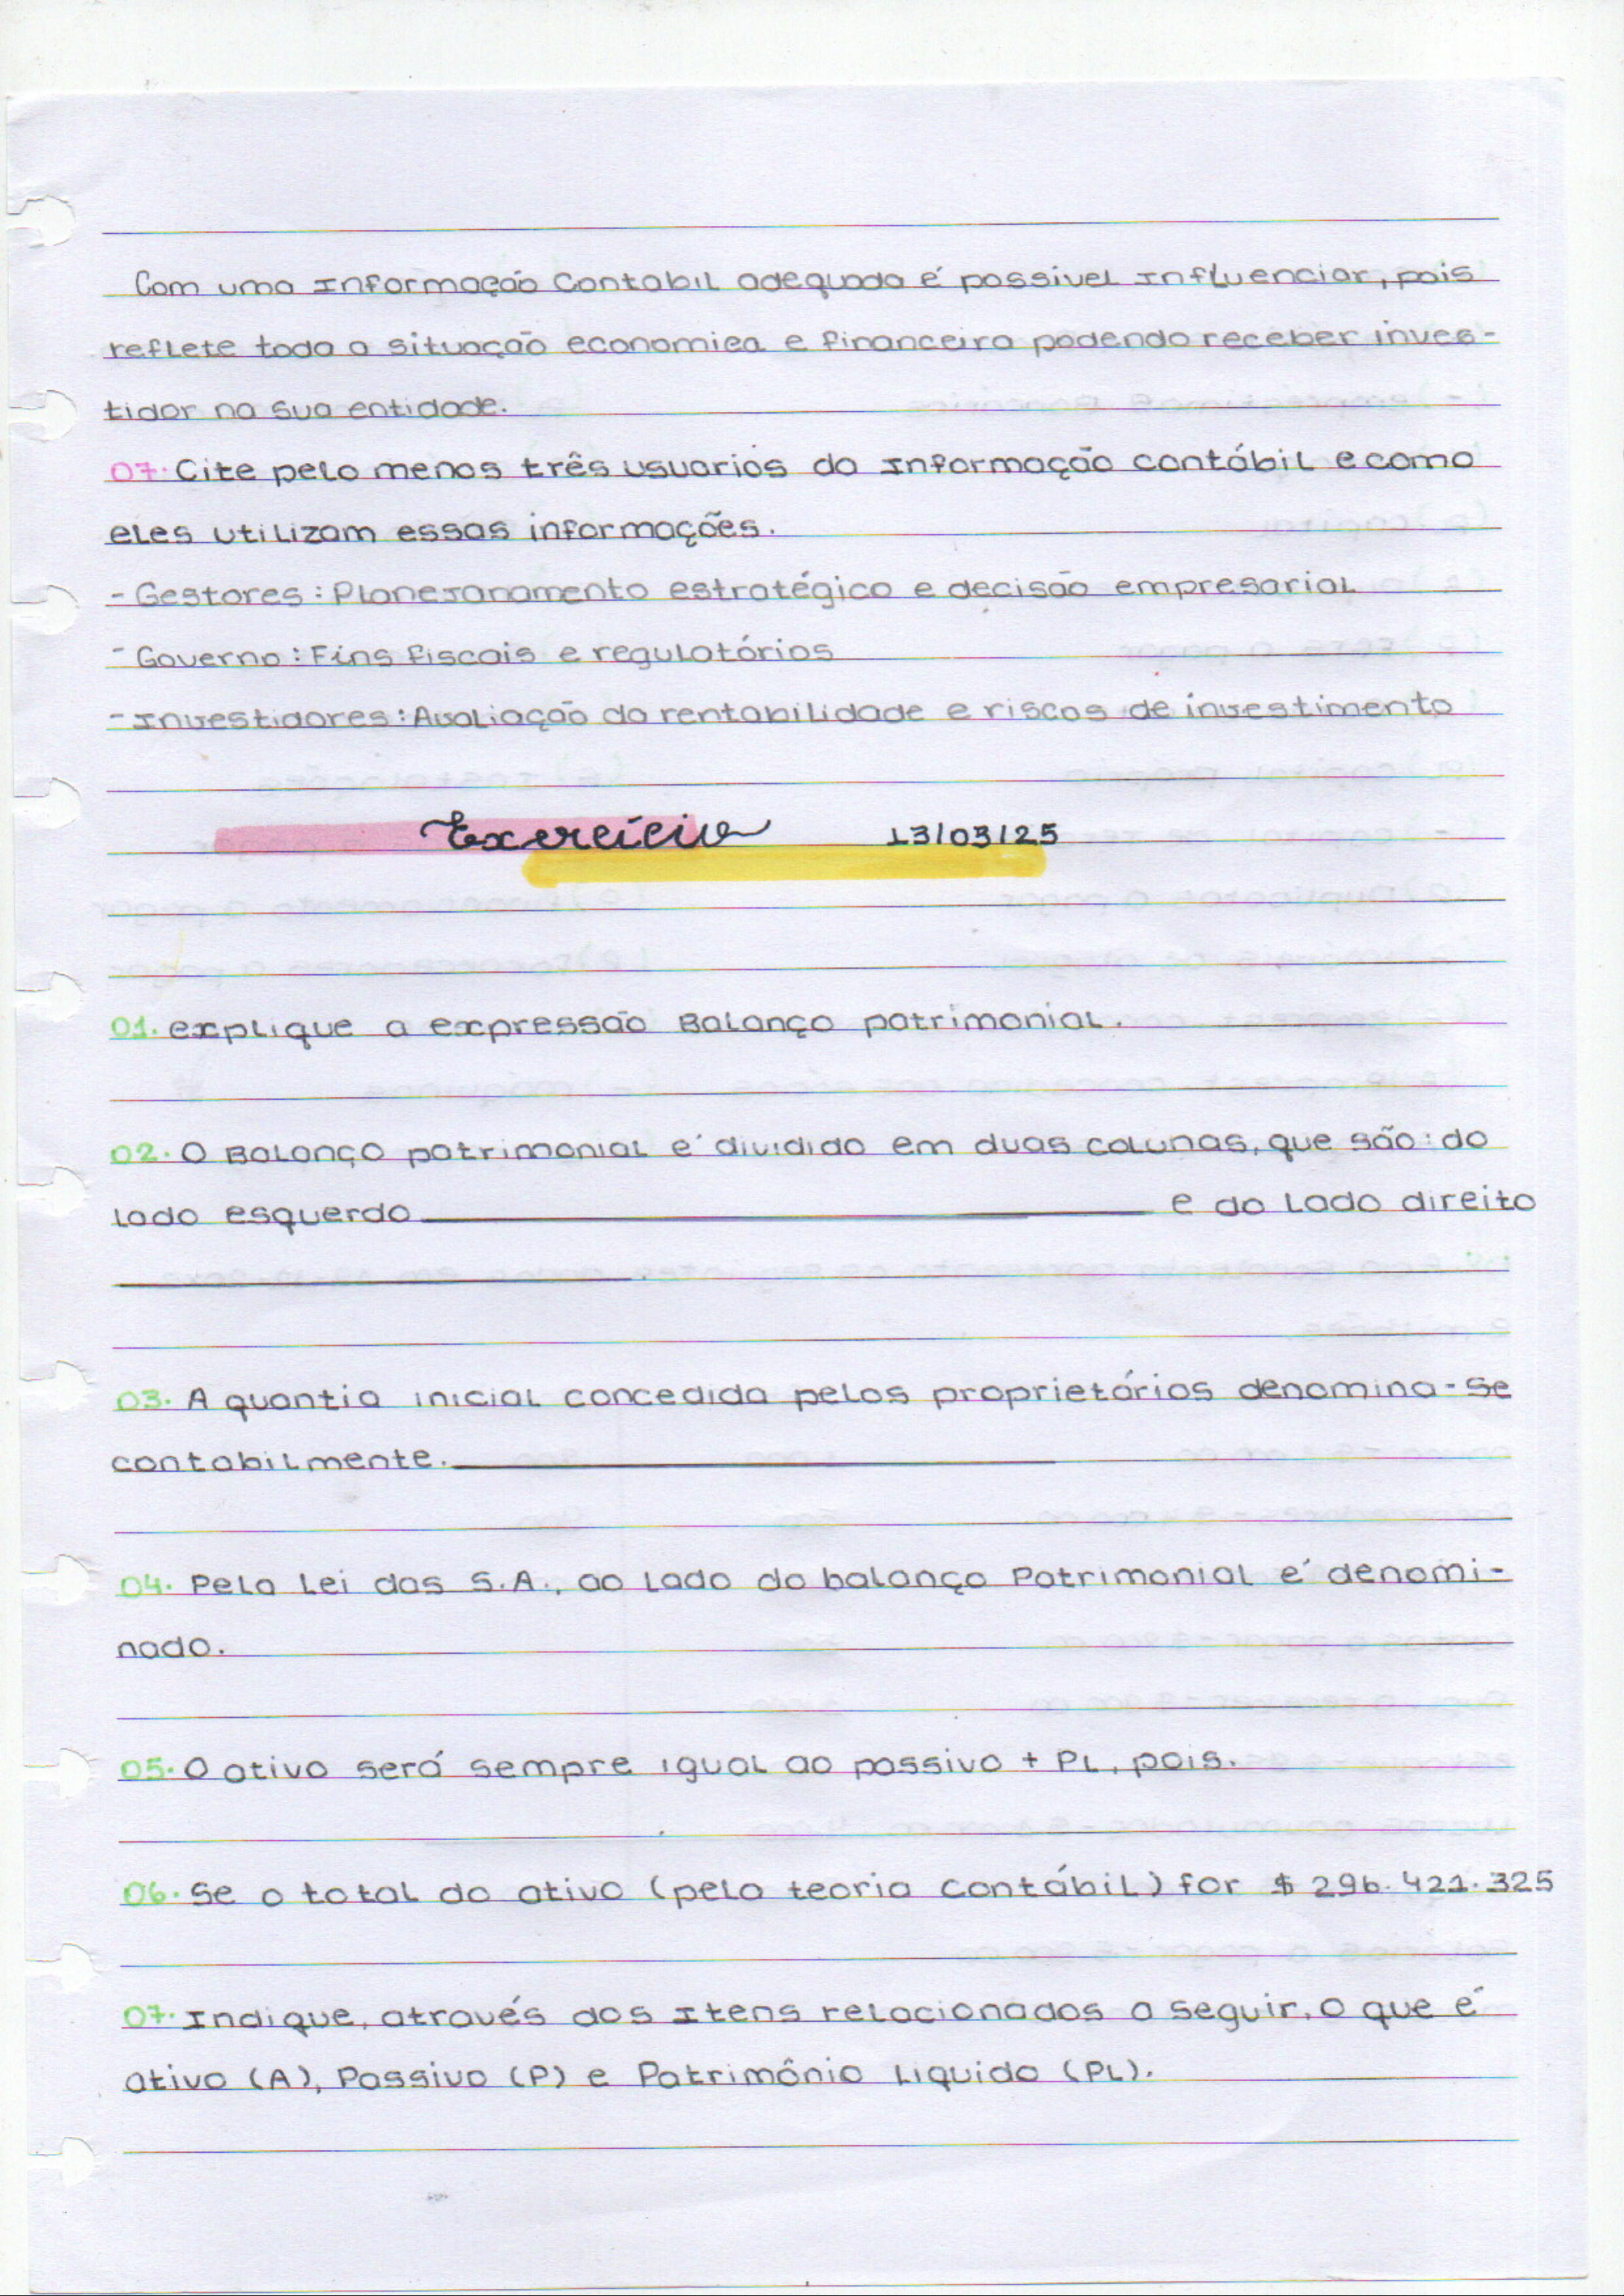 Com uma Informação Contabil adequada é possivel Influenciar, pois
reflete toda a situação economica e financeira podendo receber inves-
tidor na sua entidade.
07. Cite pelo menos três usuarios da Informação contábil e como
eles utilizam essas informações.
- Gestores: Planejanamento estratégico e decisão empresarial
- Governo: Fins fiscais e regulatórios
- Investidores: Avaliação da rentabilidade e riscos de investimento
Exercício 13/03/25
01. explique a expressão Balanço patrimonial.
02. O Balanço patrimonial é dividido em duas colunas, que são: do
lado esquerdo ____ e do lado direito
____.
03. A quantia inicial concedida pelos proprietários denomina-se
contabilmente. ____
04. Pela Lei das S.A., ao lado do balanço Patrimonial é denomi-
nado.
05. O ativo será sempre igual ao passivo + PL, pois.
06. Se o total do ativo (pela teoria contábil) for $ 296.421.325
07. Indique, através dos Itens relacionados a seguir, o que é
ativo (A), Passivo (P) e Patrimônio Liquido (PL).